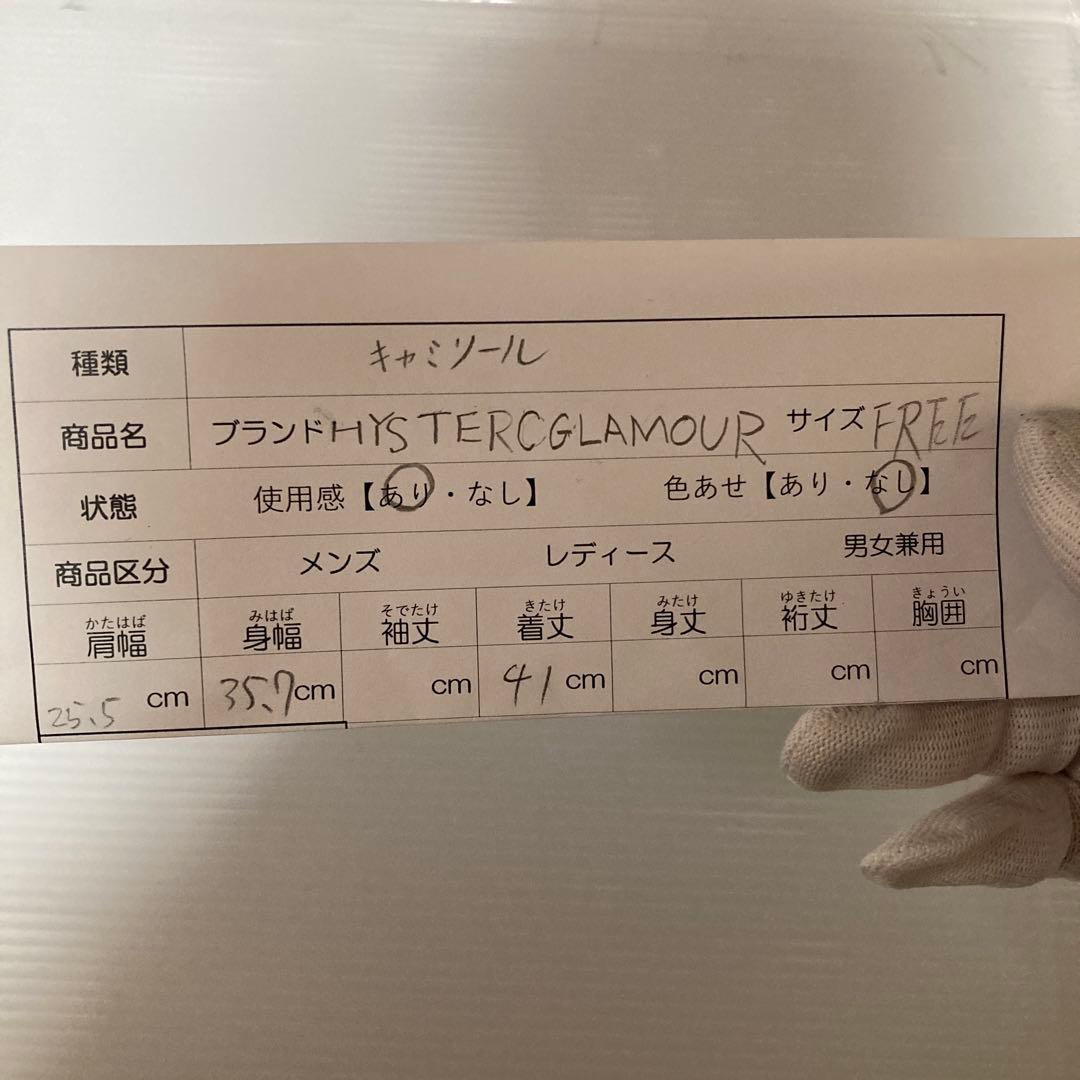 種類 キャミソール
商品名 ブランドHYSTERCGLAMOUR サイズFREE
状態 使用感【あり・なし】 色あせ【あり・なし】
商品区分 メンズ レディース 男女兼用
かたはば みはば そでたけ きたけ みたけ ゆきたけ きょうい
肩幅 身幅 袖丈 着丈 身丈 裄丈 胸囲
25.5 cm 35.7cm cm 41 cm cm cm cm